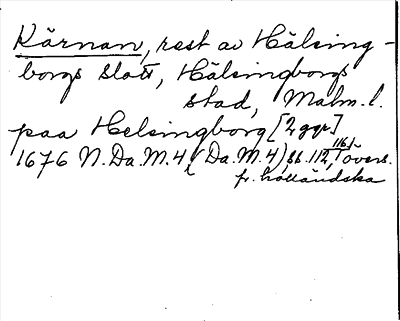 Kärnan, rest av Hälsing-
borgs slott, Hälsingborgs
stad, Malm.l.
paa Helsingborg [2 ggr]
1676 N.Da.M.4, (Da.M.4), ss. 112, 116, övers.
fr. holländska